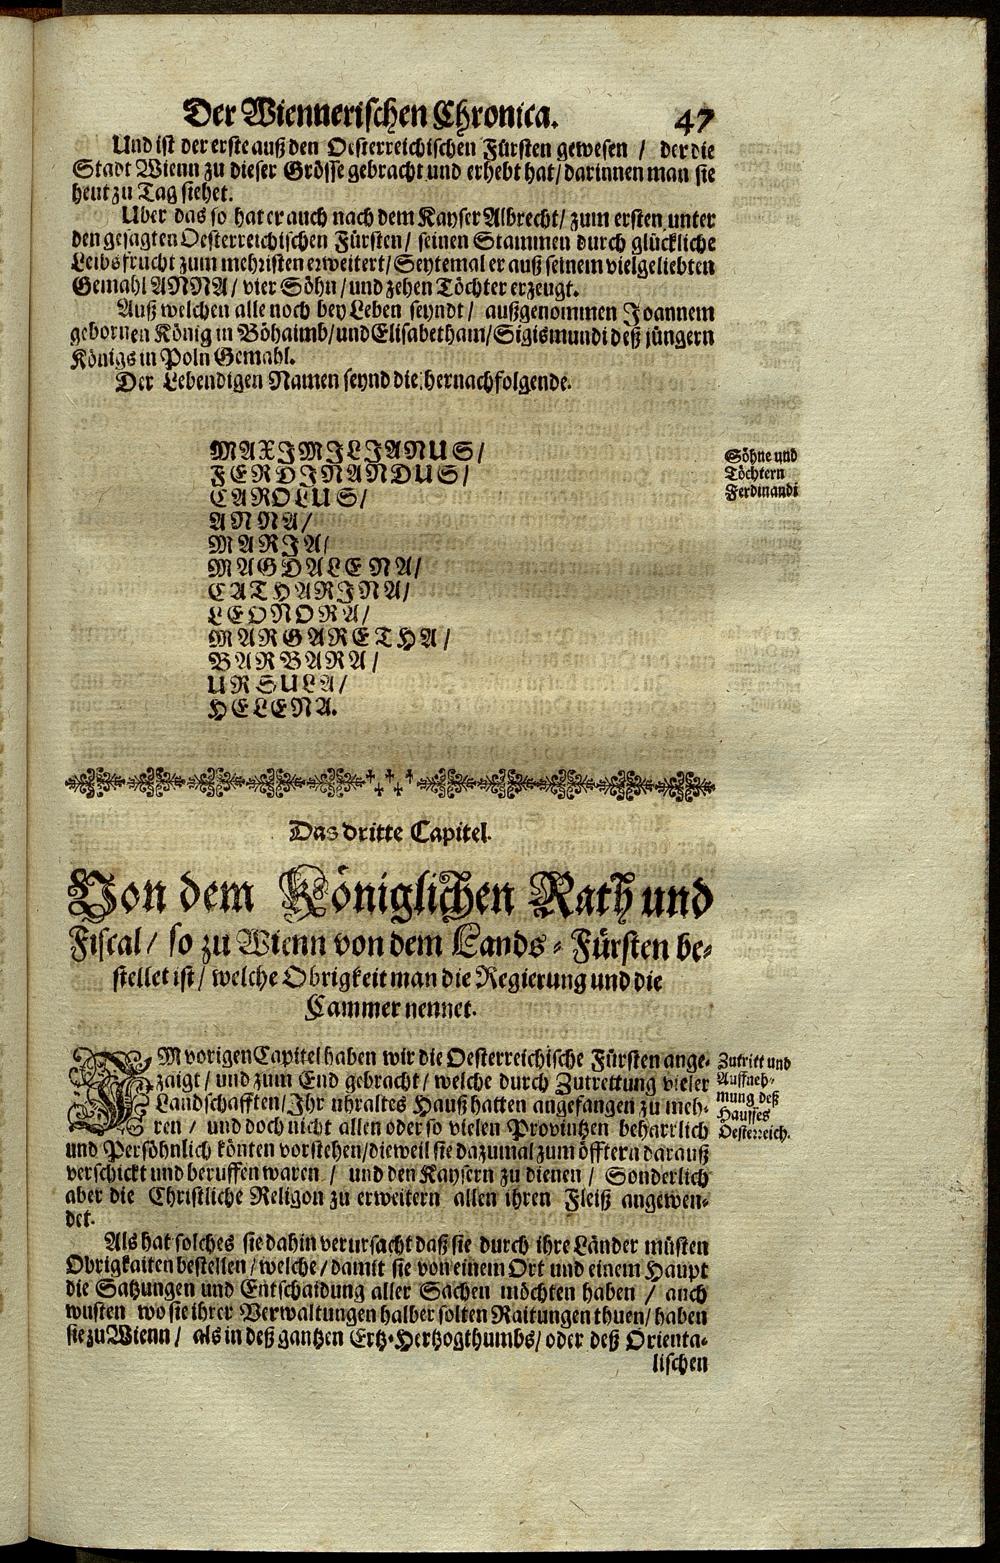 Der Wiennerischen Chronica. 47
Und ist der erste auß den Oesterreichischen Fürsten gewesen / der die
Stadt Wienn zu dieser Grösse gebracht und erhebt hat / darinnen man sie
heut zu Tag siehet.
Uber das so hat er auch nach dem Kayser Albrecht / zum ersten unter
den gesagten Oesterreichischen Fürsten / seinen Stammen durch glückliche
Leibsfrucht zum mehristen erweitert / Seytemal er auß seinem vielgeliebten
Gemahl ANNA / vier Söhn / und zehen Töchter erzeugt.
Auß welchen alle noch bey Leben seyndt / außgenommen Joannem
gebornen König in Böhaimb / und Elisabetham / Sigismundi deß jüngern
Königs in Poln Gemahl.
Der Lebendigen Namen seynd die hernachfolgende.
MAXIMILIANUS /
FERDINANDUS /
CAROLUS /
ANNA /
MARIA /
MAGDALENA /
CATHARINA /
LEONORA /
MARGARETHA /
BARBARA /
URSULA /
HELENA.
Söhne und
Töchtern
Ferdinandi
Das dritte Capitel.
Von dem Königlichen Rath und
Fiscal / so zu Wienn von dem Lands-Fürsten be-
stellet ist / welche Obrigkeit man die Regierung und die
Cammer nennet.
IM vorigen Capitel haben wir die Oesterreichische Fürsten ange-
zaigt / und zum End gebracht / welche durch Zutrettung vieler
Landschafften / Ihr uhraltes Hauß hatten angefangen zu meh-
ren / und doch nicht allen oder so vielen Provintzen beharrlich
und Persöhnlich könten vorstehen / dieweil sie dazumal zum öfftern darauß
verschickt und beruffen waren / und den Kaysern zu dienen / Sonderlich
aber die Christliche Religon zu erweitern allen ihren Fleiß angewen-
det.
Zutritt und
Auffneh-
mung deß
Hausses
Oesterreich.
Als hat solches sie dahin verursacht daß sie durch ihre Länder müsten
Obrigkaiten bestellen / welche / damit sie von einem Ort und einem Haupt
die Satzungen und Entschaidung aller Sachen möchten haben / auch
wusten wo sie ihrer Verwaltungen halber solten Raitungen thuen / haben
sie zu Wienn / als in deß gantzen Ertz-Hertzogthumbs / oder deß Orienta-
lischen